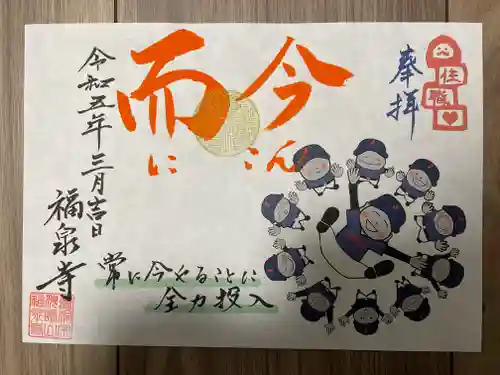 奉拝
住職
而今
にこん
常に今やることに
全力投入
令和五年三月吉日
福泉寺